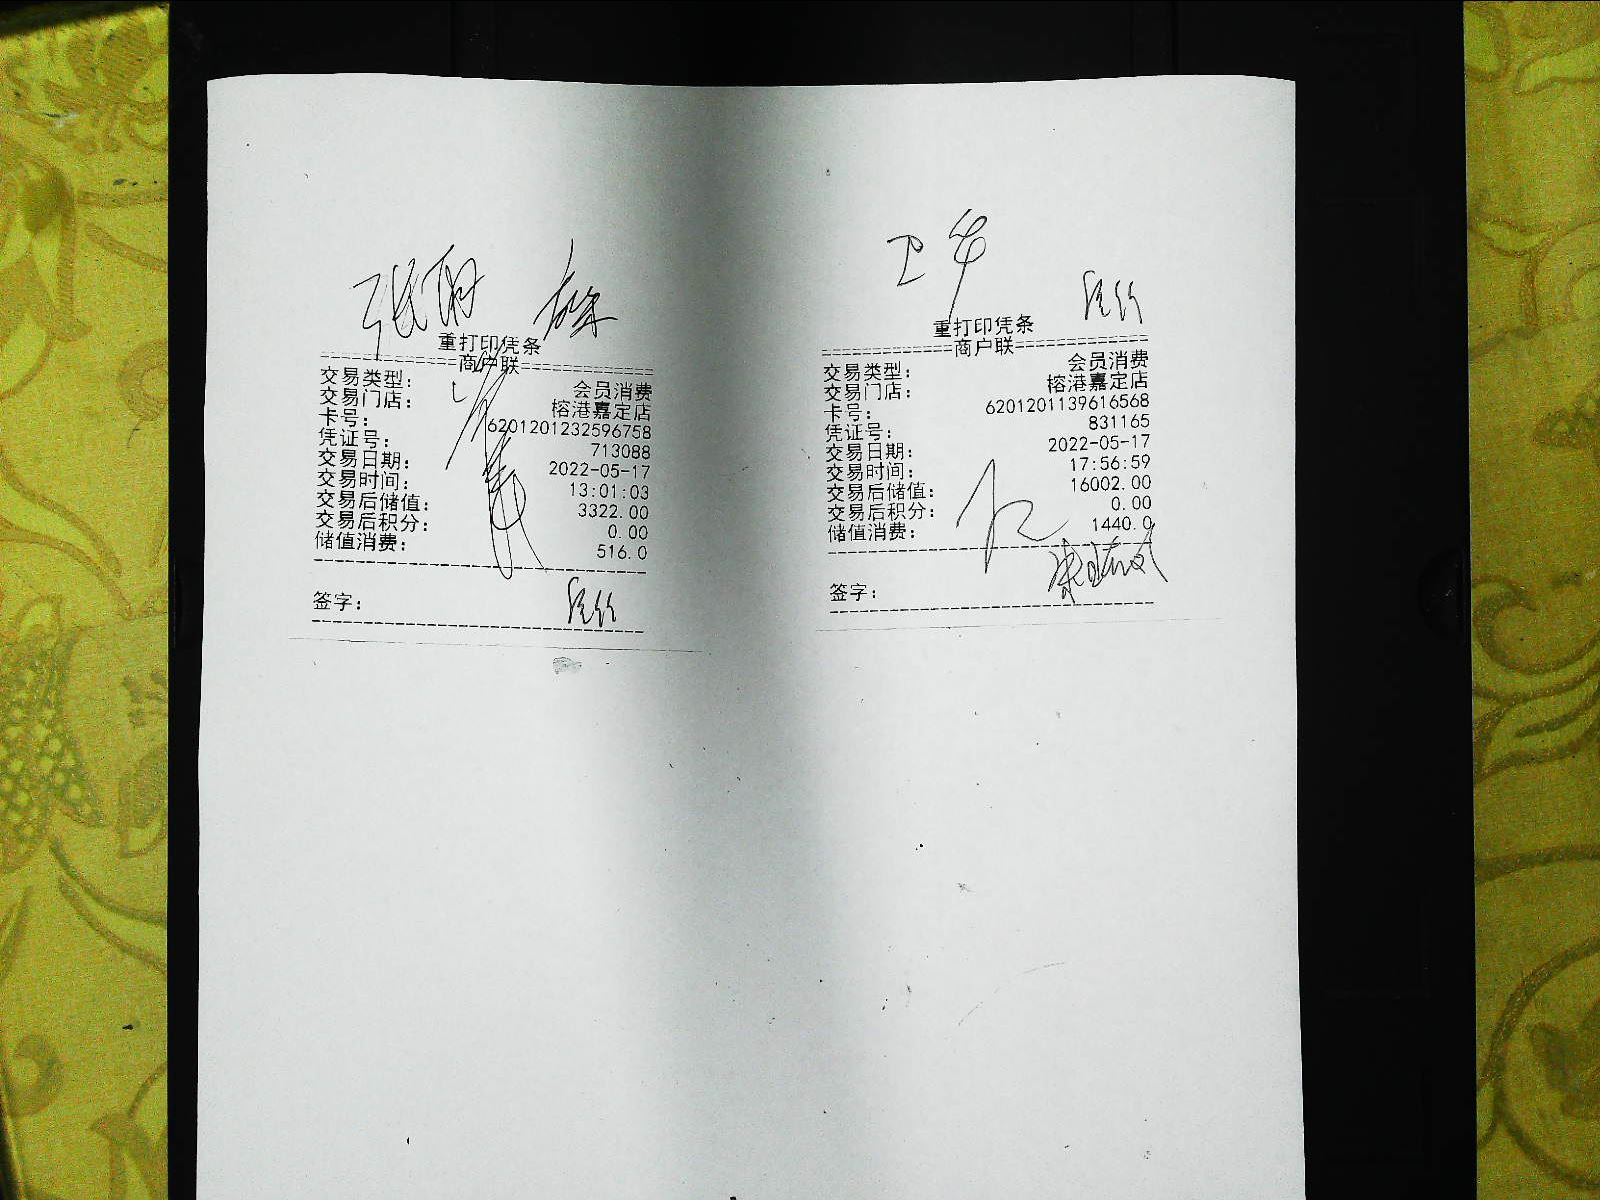 重打印凭条
==============商户联==============
交易类型： 会员消费
交易门店： 榕港嘉定店
卡号： 6201201232596758
凭证号： 713088
交易日期： 2022-05-17
交易时间： 13:01:03
交易后储值： 3322.00
交易后积分： 0.00
储值消费： 516.0
签字：
卫华
重打印凭条
==============商户联==============
交易类型： 会员消费
交易门店： 榕港嘉定店
卡号： 6201201139616568
凭证号： 831165
交易日期： 2022-05-17
交易时间： 17:56:59
交易后储值： 16002.00
交易后积分： 0.00
储值消费： 1440.0
签字：